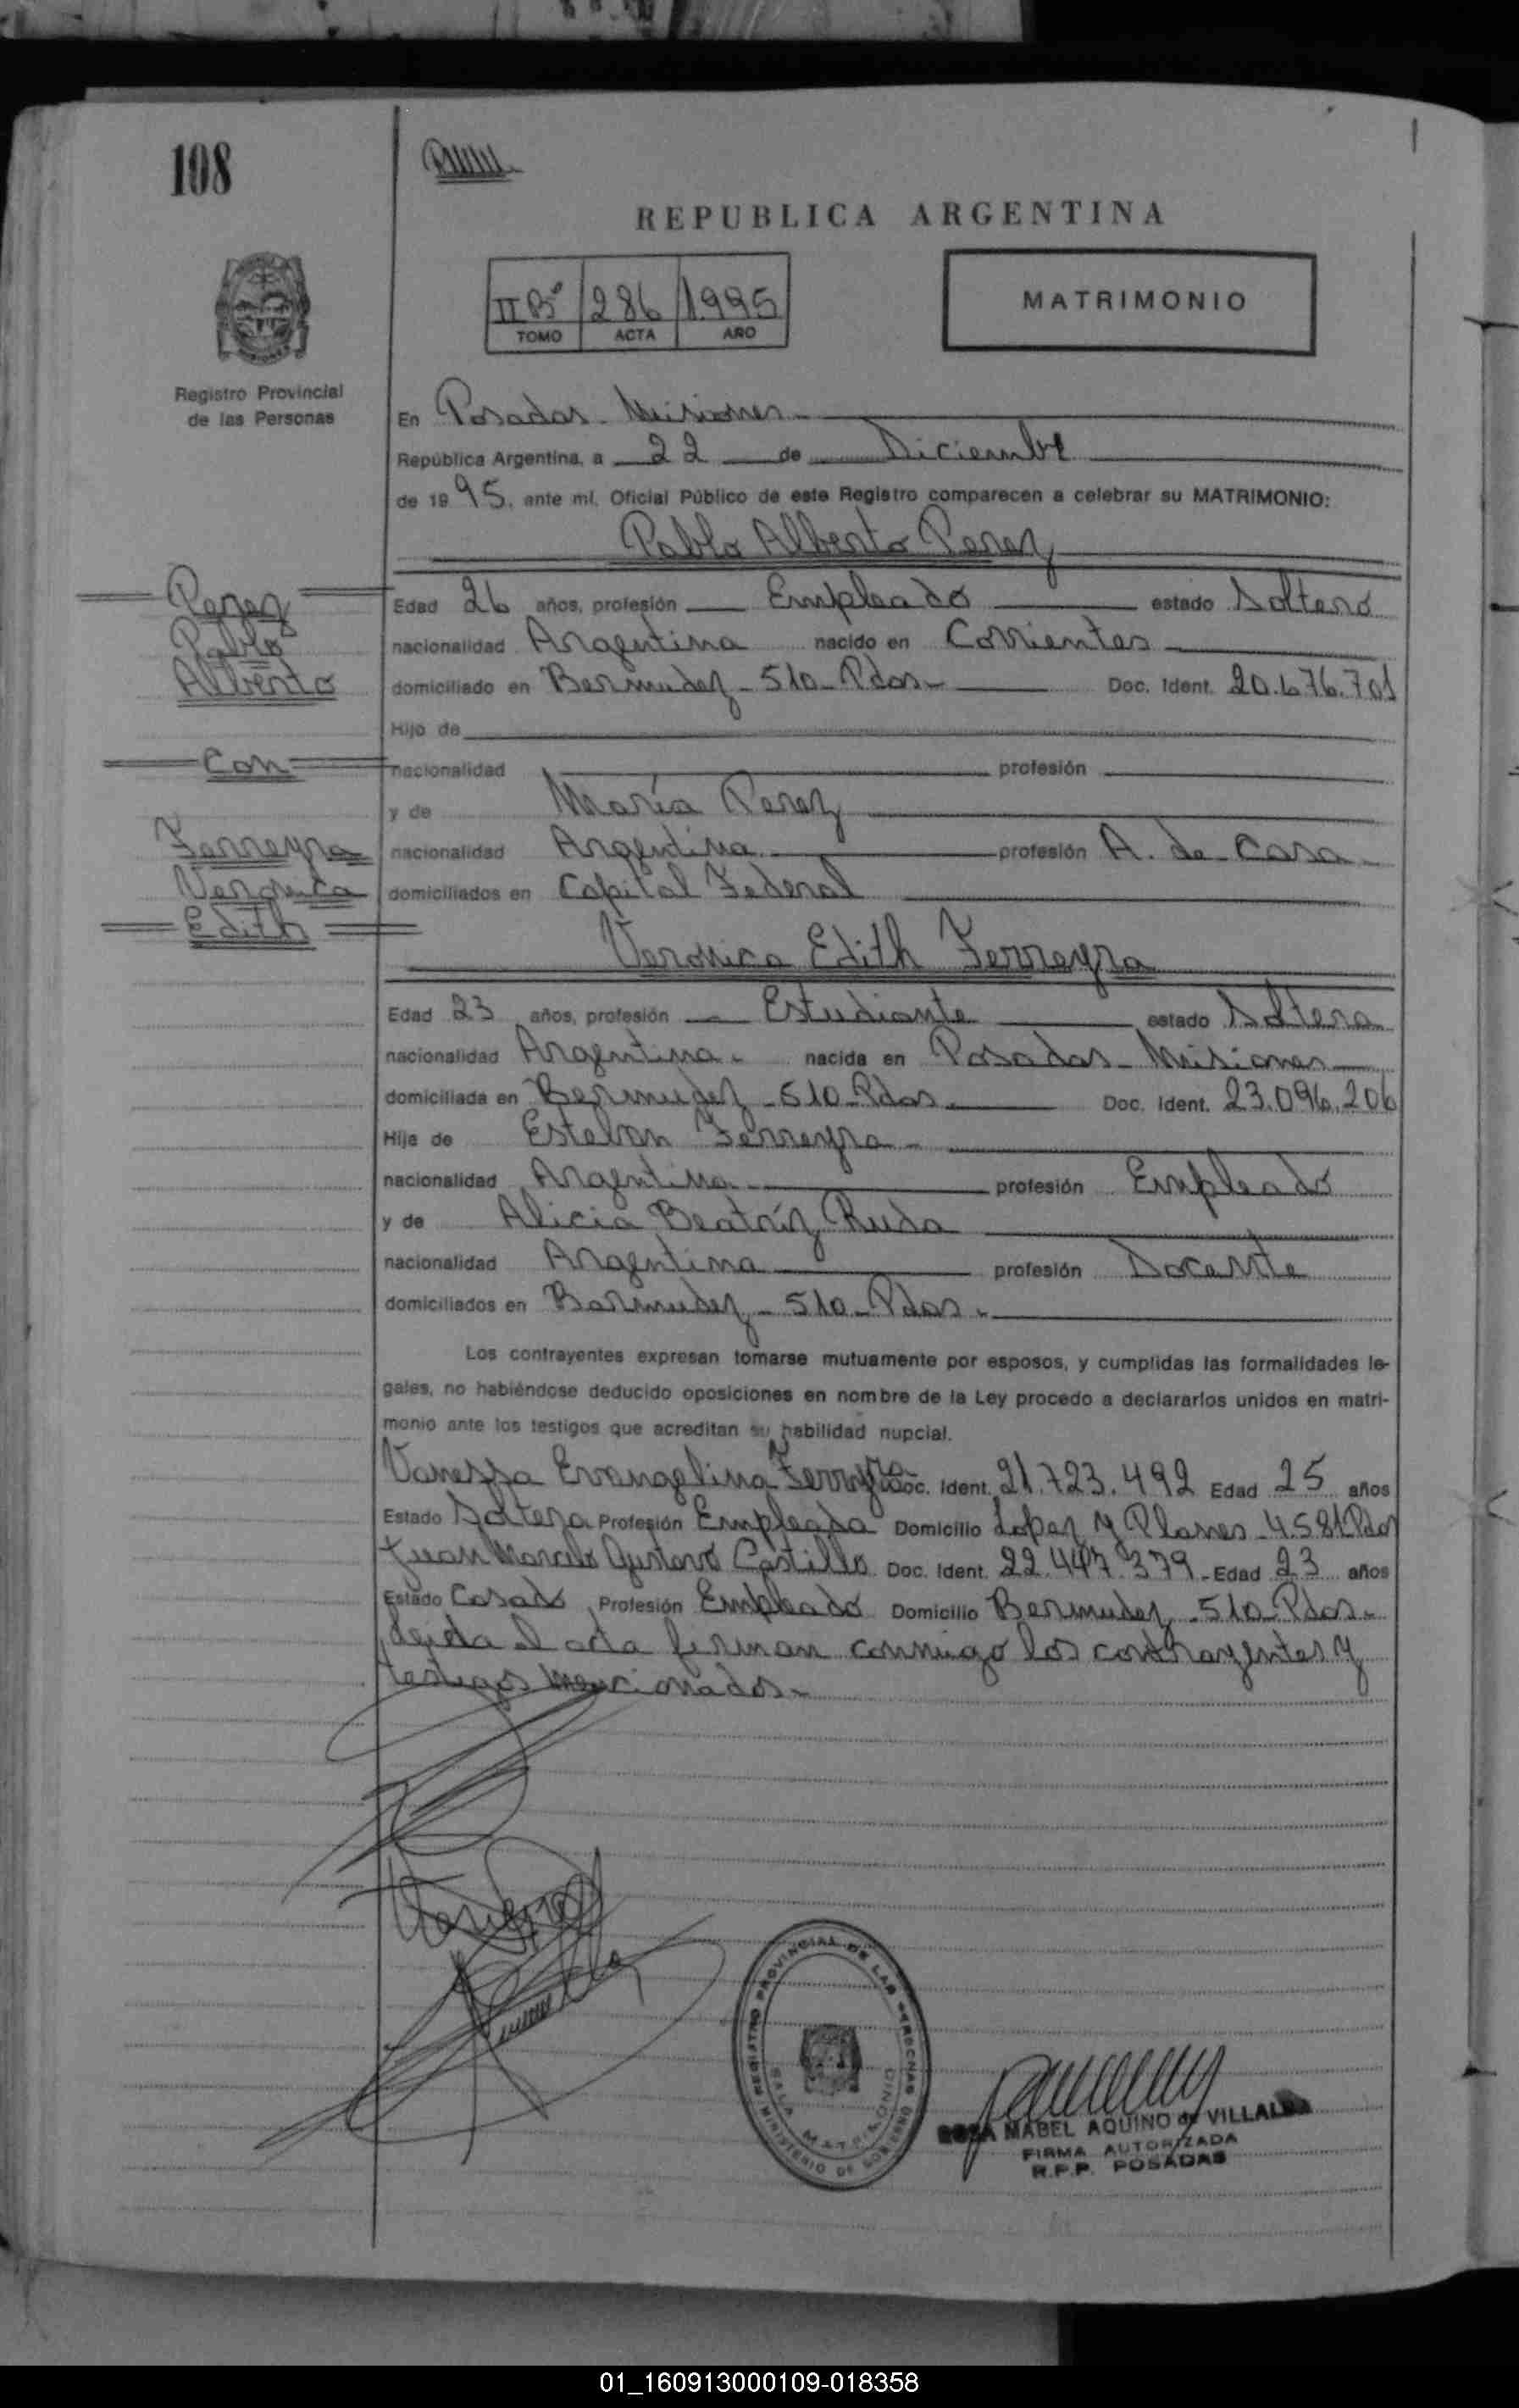 108
REPUBLICA ARGENTINA
II Bº 286 1.995
TOMO ACTA AÑO
MATRIMONIO
Registro Provincial
de las Personas
En Posadas - Misiones
República Argentina, a 22 de Diciembre
de 1995, ante mí, Oficial Público de este Registro comparecen a celebrar su MATRIMONIO:
Pablo Alberto Perez
Perez
Pablo
Alberto
Con
Ferreyra
Veronica
Edith
Edad 26 años, profesión Empleado estado Soltero
nacionalidad Argentina nacido en Corrientes
domiciliado en Bermudez - 510 - Pdas - Doc. Ident. 20.676.701
Hijo de
nacionalidad profesión
y de María Perez
nacionalidad Argentina profesión A. de Casa
domiciliados en Capital Federal
Veronica Edith Ferreyra
Edad 23 años, profesión Estudiante estado Soltera
nacionalidad Argentina nacida en Posadas - Misiones
domiciliada en Bermudez - 510 - Pdas. Doc. Ident. 23.096.206
Hija de Esteban Ferreyra
nacionalidad Argentina profesión Empleado
y de Alicia Beatríz Ruda
nacionalidad Argentina profesión Docente
domiciliados en Bermudez - 510 - Pdas.
Los contrayentes expresan tomarse mutuamente por esposos, y cumplidas las formalidades le-
gales, no habiéndose deducido oposiciones en nombre de la Ley procedo a declararlos unidos en matri-
monio ante los testigos que acreditan su habilidad nupcial.
Vanessa Evangelina Ferreyra Doc. Ident. 21.723.492 Edad 25 años
Estado Soltera Profesión Empleada Domicilio Lopez y Planes 4.581 Pdas
Juan Marcelo Gustavo Castillo Doc. Ident. 22.447.379 - Edad 23 años
Estado Casado Profesión Empleado Domicilio Bermudez - 510 - Pdas -
leida el acta firman conmigo los contrayentes y
testigos mencionados -
REGISTRO PROVINCIAL DE LAS PERSONAS
SALA MATRIMONIO
MINISTERIO DE GOBIERNO
ROSA MABEL AQUINO de VILLALBA
FIRMA AUTORIZADA
R.P.P. POSADAS
01_160913000109-018358